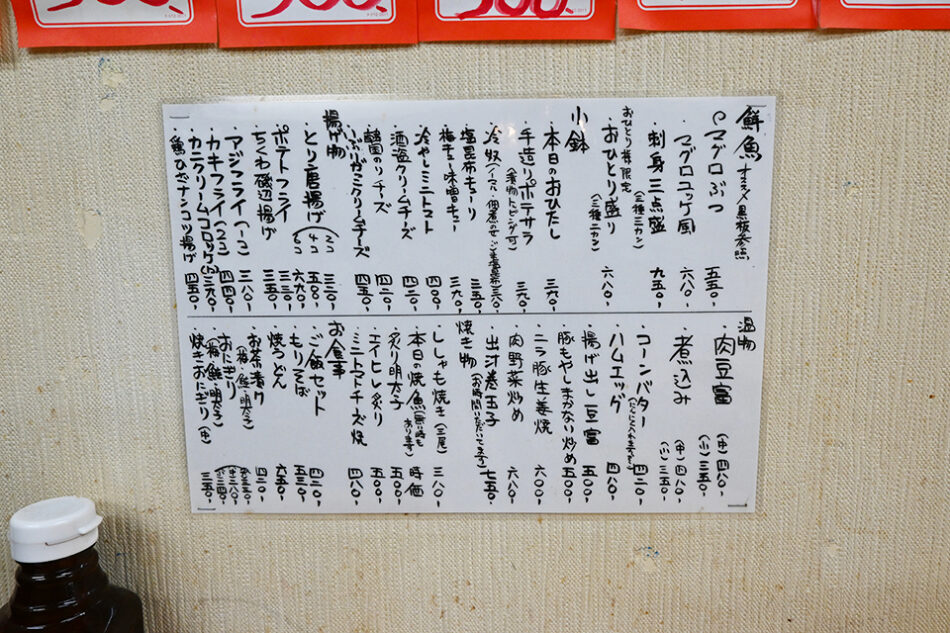 鮮魚 オススメ黒板参照
マグロぶつ 五五〇-
マグロユッケ風 六八〇-
刺身三点盛(三種三カン) 九五〇-
おひとり様限定
おひとり盛り(三種二カン) 六八〇-
小鉢
・本日のおひたし 三九〇-
・手造りポテサラ(漬物トッピング可) 三九〇-
・冷奴
・塩昆布キューリ 三五〇-
・梅キュー味噌キュー 三九〇-
・冷やしミニトマト 四〇〇-
・酒盗クリームチーズ 四二〇-
・韓国のりチーズ 四二〇-
・いぶりガッコクリームチーズ 四五〇-
揚げ物
・とり唐揚げ 2コ 三三〇-
4コ 五〇〇-
6コ 六九〇-
・ポテトフライ 三三〇-
・ちくわ磯辺揚げ 三五〇-
・アジフライ(一コ) 三八〇-
・カキフライ(2コ) 四四〇-
・カニクリームコロッケ 三九〇-
・鶏ひざナンコツ揚げ 四五〇-
温物
・肉豆富 (中)四八〇-
(小)三五〇-
・煮込み (中)四八〇-
(小)三五〇-
・コーンバター 四二〇-
・ハムエッグ 四八〇-
・揚げ出し豆富 五〇〇-
・豚もやしまかない炒め 五〇〇-
・ニラ豚生姜焼 六〇〇-
・肉野菜炒め 六八〇-
・出汁巻玉子(お時間いただいてます) 七五〇-
焼き物
・ししゃも焼き(三尾) 三八〇-
・本日の焼魚 時価
・炙り明太子 五〇〇-
・エイヒレ炙り 五〇〇-
・ミニトマトチーズ焼 四八〇-
お食事
・ご飯セット 四三〇-
・もりそば 五三〇-
・焼うどん 六五〇-
・お茶漬け(梅・鮭・明太子) 四三〇-
・おにぎり(梅・鮭・明太子)
・焼きおにぎり(中) 三五〇-